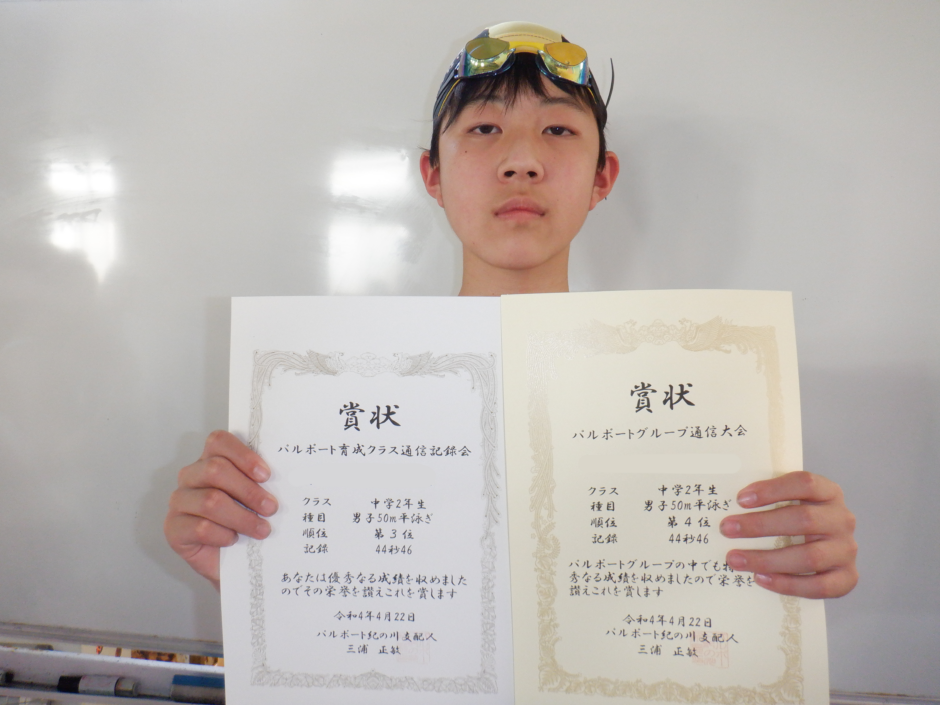 賞状
バルポート育成クラス通信記録会
クラス 中学2年生
種目 男子50m平泳ぎ
順位 第3位
記録 44秒46
あなたは優秀なる成績を収めました
のでその栄誉を讃えこれを賞します
令和4年4月22日
バルポート紀の川支配人
三浦 正敏
賞状
バルポートグループ通信大会
クラス 中学2年生
種目 男子50m平泳ぎ
順位 第4位
記録 44秒46
バルポートグループの中でも
秀なる成績を収めましたので栄誉を
讃えこれを賞します
令和4年4月22日
バルポート紀の川支配人
三浦 正敏